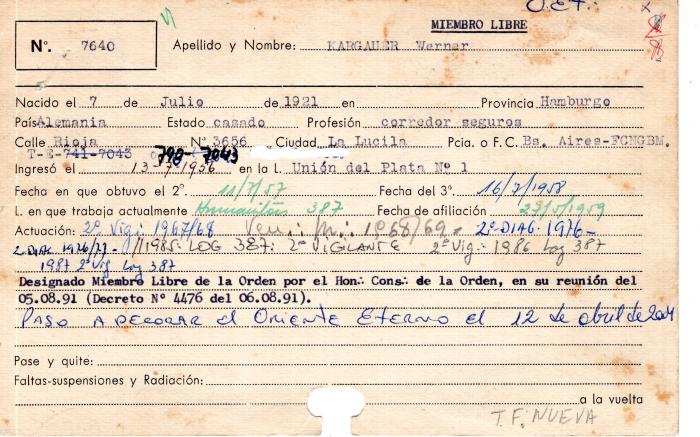 O.E.F.
MIEMBRO LIBRE
N°. 7640
Apellido y Nombre: KARGAUER Werner
Nacido el 7 de Julio de 1921 en Provincia Hamburgo
País Alemania Estado casado Profesión corredor seguros
Calle Rioja N° 3656 Ciudad La Lucila Pcia. o F.C. Bs. Aires-FCNGBM.
T-E-741-7043 790-7043
Ingresó el 13-7-1956 en la L. Unión del Plata Nº 1
Fecha en que obtuvo el 2°. 11/7/57 Fecha del 3°. 16/7/1958
L. en que trabaja actualmente Humanitas 387 Fecha de afiliación 23/5/1959
Actuación: 2° Vig: 1967/68 Ven: M: 1968/69 - 2° DIAC. 1976 -
2 DIAC 1976/77 - //1985: LOG 387: 2° VIGILANTE 2° Vig: - 1986 Log 387
1987 2° Vig Log 387
Designado Miembro Libre de la Orden por el Hon:. Cons:. de la Orden, en su reunión del
05.08.91 (Decreto N° 4476 del 06.08.91).
PASO A DECORAR el ORIENTE ETERNO el 12 de abril de 2004
Pase y quite:
Faltas-suspensiones y Radiación:
a la vuelta
T.F. NUEVA